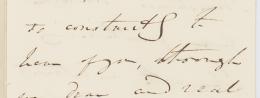 to construct & to
hear of you, through
dear and real